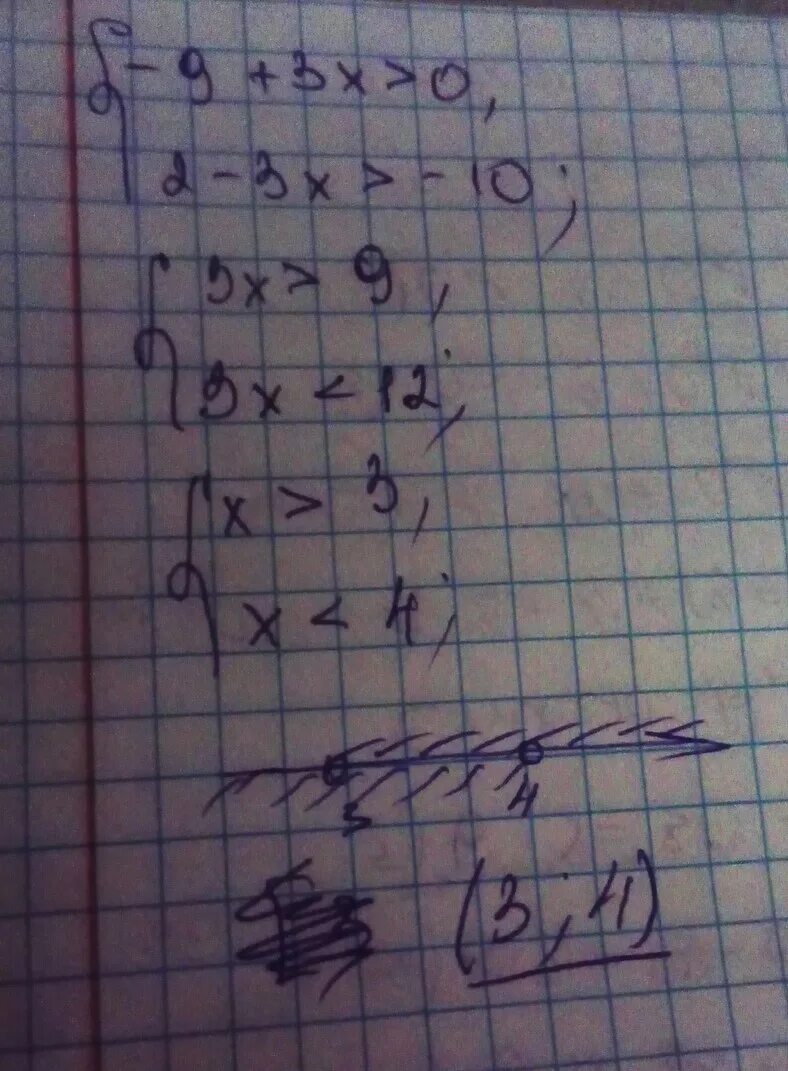 - 9 + 3x > 0,
2 - 3x > - 10;
3x > 9,
3x < 12;
x > 3,
x < 4;
3 4
(3; 4)